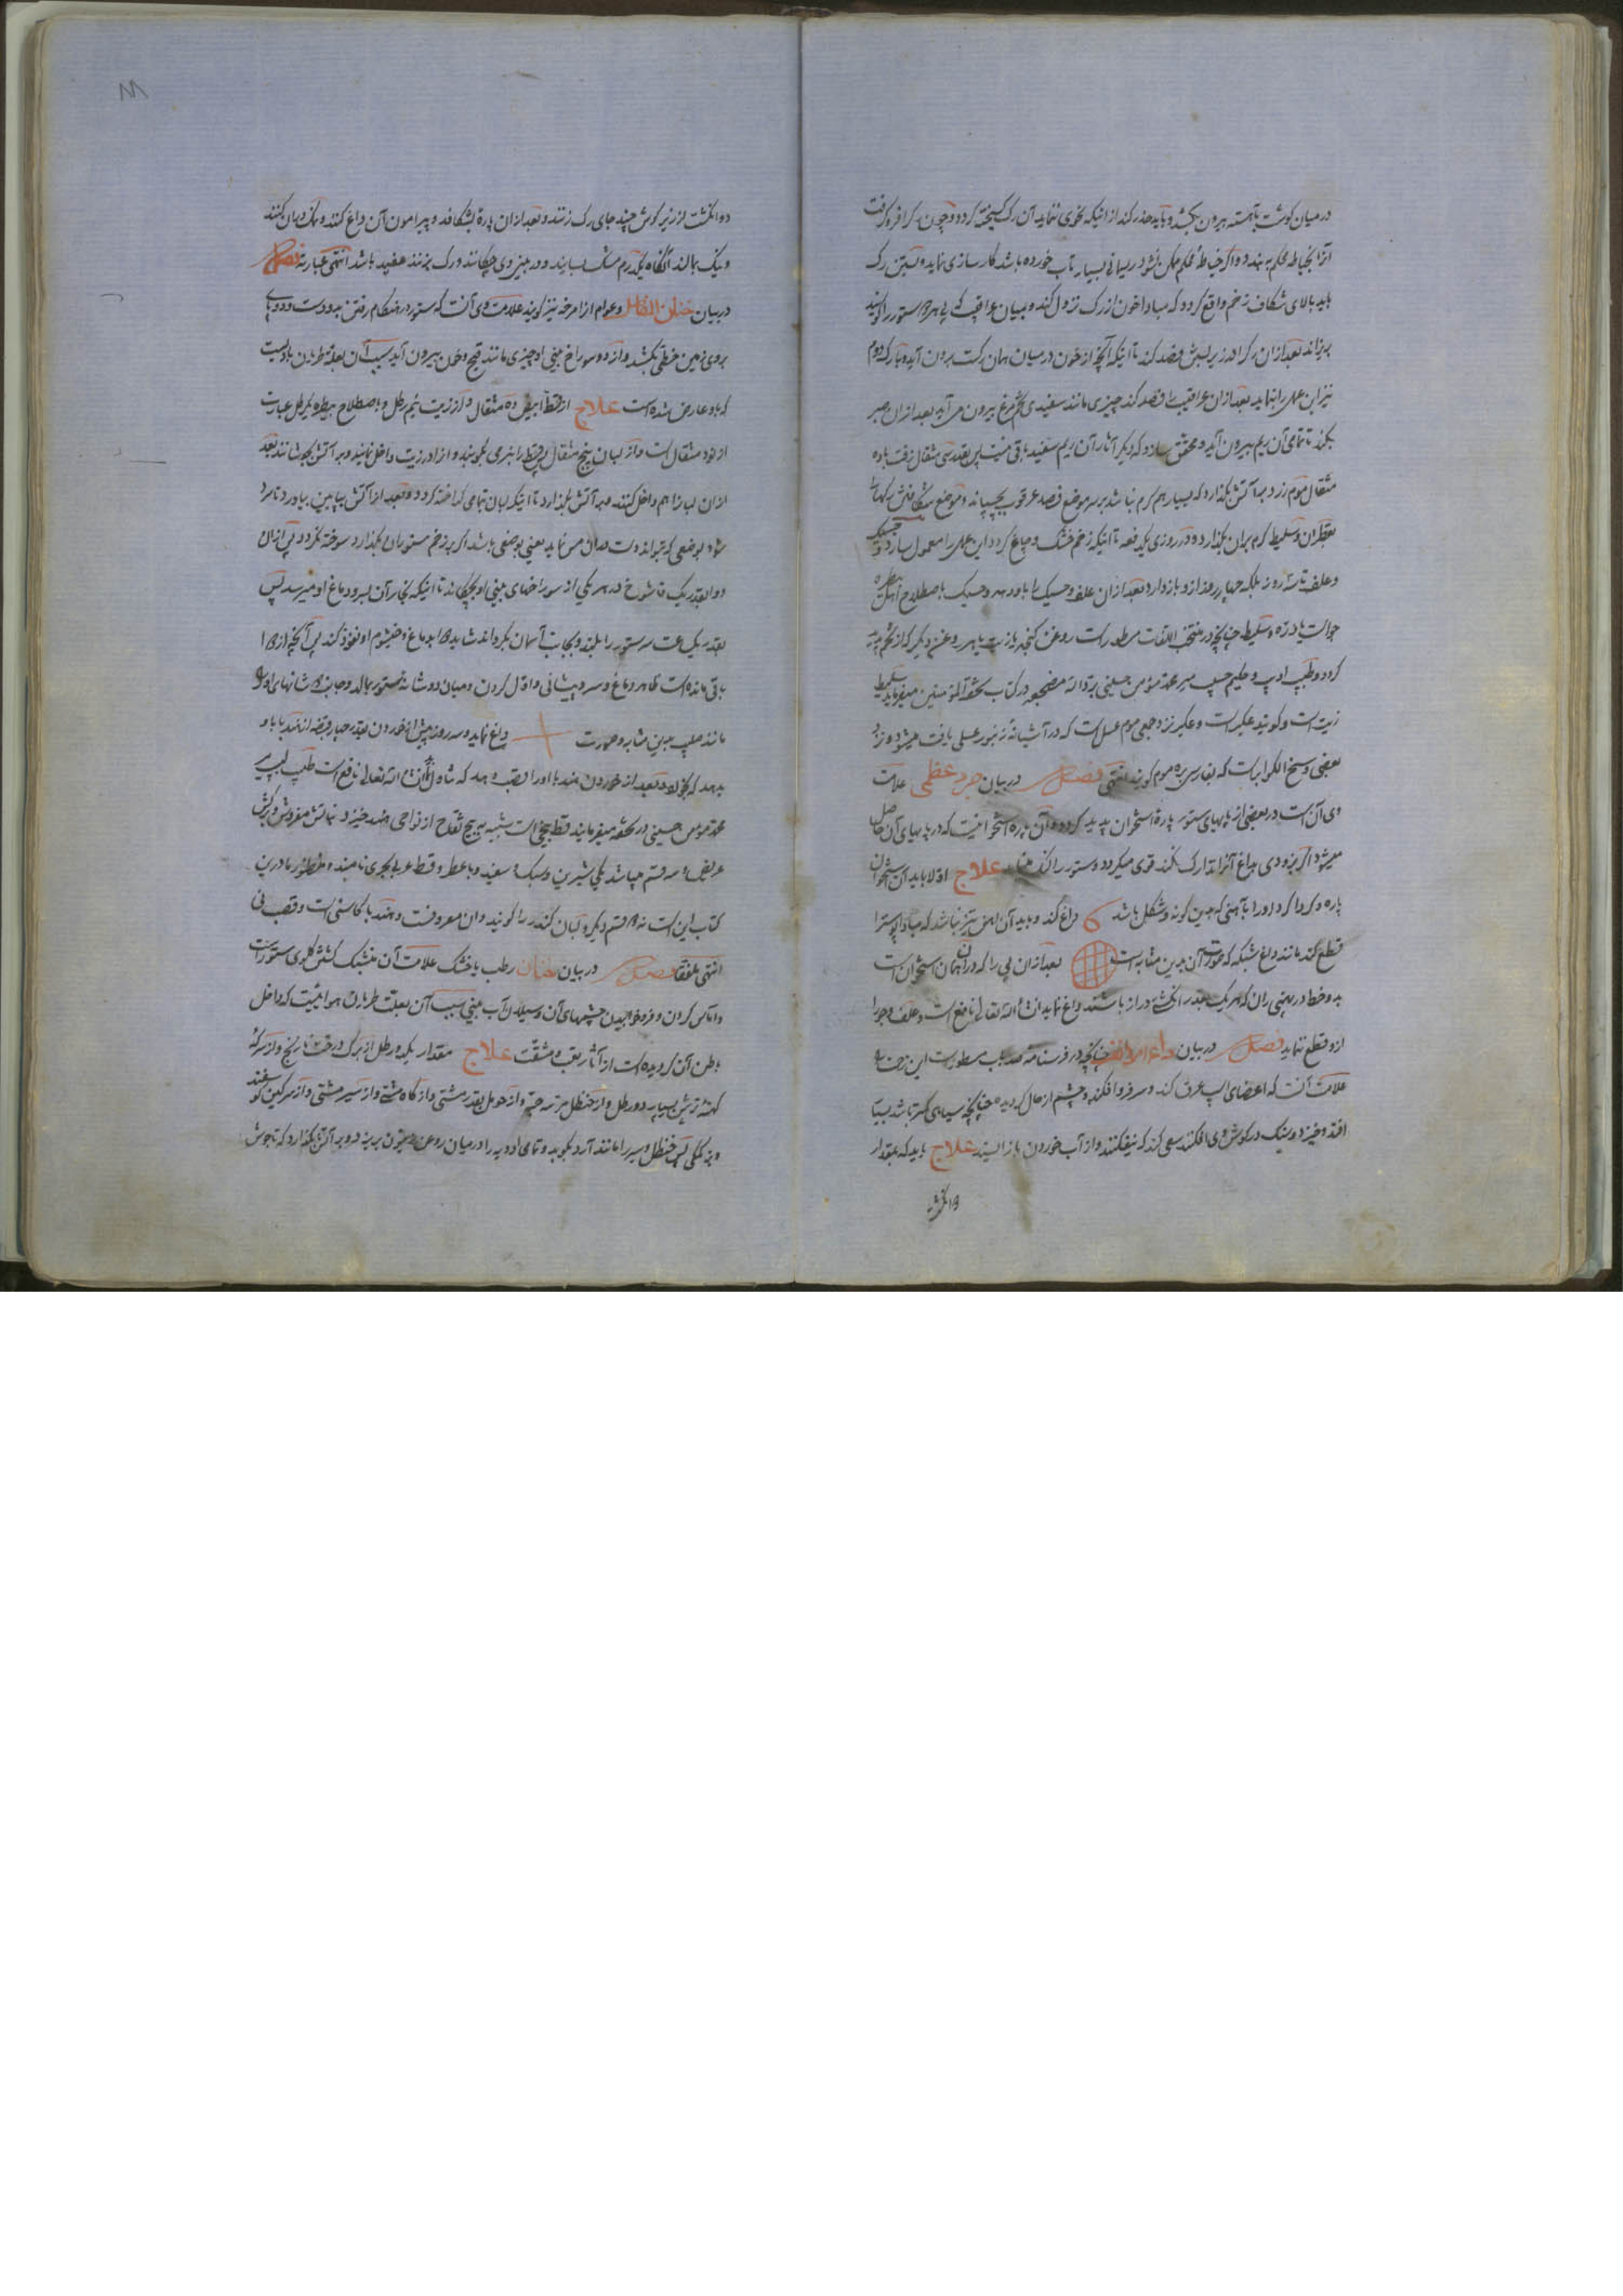 در میان گوشت بآهسته بیرون بکشد و باید حذر کند از اینکه نحوی ننماید آن رگ گسیخته گردد و چون رگ را فرو گرفت
آنرا بخیاطه محکم به بندد و اگر خیاطهٔ محکم ممکن نشود ریسمانی بسیار تاب خورده باشد کارسازی نماید و بستن رگ
باید بالای شکاف زخم واقع گردد که مبادا خون از رگ نزول کند و میان عراقیب که پی هر دو ستور را گویند
بریزاند بعد از آن رگ را از زیر لبش فصد کند تا اینکه آنچه از خون در میان همان رگست برون آید و با رگ دوم
نیز این عمل را بنماید بعد از آن عراقیب را فصد کند چیزی مانند سفیدی تخم مرغ بیرون می آید بعد از آن صبر
بکند تا تمامی آن ریم بیرون آید و محقق سازد که دیگر آثار آن ریم سفید باقی نیست پس بقدر سی مثقال زفت با ده
مثقال موم زرد بر آتش بگذارد که بسیار هم گرم نباشد بر سر موضع فصد عرقوب بچسپاند و موضع شکافتن رگها را
بقطران و سلیط گرم بران بگذارد و در روزی یکدفعه تا اینکه زخم خشک و چاغ گردد این عمل را معمول سازد و حسیک
و علف تا سه روز بلکه چهار روز از و باز دارد بعد از آن علف و حسیک را باو دهد و حسیک باصطلاح اهل بیطره
جو است یا ذره و سلیط چنانچه در منتخب اللغات مسطور است روغن کنجد یا زیت یا هر روغن دیگر که از تخم پدید
گردد و طبیب ادیب و حکیم حسیب میر محمد مؤمن حسینی برد الله مضجعه در کتاب تحفة المؤمنین میفرماید سلیط
زیت است و گویند عکر است و عکبر نزد جمعی موم عسل است که در آشیانهٔ زنبور عسلی یافت میشود و نزد
بعضی وسخ الکوایر است که بفارسی بره موم گویند انتهی فصل در بیان جرد عظمی علامت
وی آن است در بعضی از پایهای ستور پارهٔ استخوان پدید گردد و آن پاره استخوانیست که در پایهای آن حاصل
میشود اگر بزودی بداغ آنرا تدارک نکند قوی میگردد و ستور را لنگ میسازد علاج اولا باید آن استخوان
پاره و گرداگرد او را بآهنی که بدین گونه و شکل باشد داغ کند و باید آن آهن تیز نباشد که مبادا پوست را
قطع کند مانند داغ شبکه که صورت آن بدین مثابه است بعد از آن پی را که در آن همان استخوان است
بدو خط در پهنی ران که هر یک بقدر انگشتی دراز باشند داغ نماید انشاءالله تعالی نافع است و علف و جو را
ازو قطع ننماید فصل در بیان چنانچه در فرسنامه صد باب مسطور است این زحمت را
علامت آنست که اعضای اسپ عرق کند و سر فرو افکند و چشم از حال گردیده چنانچه سیاهی کمتر باشد بسیار
افتد و خیزد و سنگ در گوش وی افکنند سعی کند که بیفکند و از آب خوردن باز ایستد علاج باید که بمقدار
دو انگشت
دو انگشت از زیر گوش چند جای رگ زنند و بعد از آن پاره بشکافد و پیرامون آن داغ کنند و نمک در آن کنند
و نیک بمالند آنگاه یکدرم مشک بسایند و در بینی وی چکانند و رگ بزنند مفید باشد انتهی عبارته فصل
در بیان خنان القاتل و عوام از امرخه نیز گویند علامت وی آنست که ستور در هنگام رفتن بدو دست و دو پای
بروی زمین خطی بکشد و از دو سوراخ بینی او چیزی مانند قیح و خون بیرون آید سبب آن بعلة طربان بادیست
که باو عارض شده است علاج از قسط ابیض ده مثقال و از زیت نیم رطل و باصطلاح بیطره یکرطل عبارت
از نود مثقال است و از لبان پنج مثقال پس قسط را بنرمی بکوبند و او را در زیت داخل نمایند و بر آتش بجوشانند بعد
از آن لبان را هم داخل کنند و بر آتش بگذارد تا اینکه لبان تمامی گداخته گردد و بعد از آتش بپایین بیاورد تا سرد
شود بوضعی که تواند دست در آن مس نماید یعنی بوضعی باشد اگر بر زخم ستور آن بگذارد سوخته نگردد پس از آن
دوا بقدر یک قاشوخ در هر یکی از سوراخهای بینی او بچکاند تا اینکه بخار آن بسر و دماغ او میرسد پس
بقدر یک ساعت سر ستور را بلند و بجانب آسمان بگرداند شاید دوا بدماغ و خیشوم او نفوذ کند پس آنچه از دوا
باقی مانده است ظاهر دماغ و سر و پیشانی و اول گردن و میان دو شانهٔ ستور بمالد و جانب دو شانهای او را
مانند صلیب بدین مثابه و صورت داغ نماید و سه روز پیش از خوردن بقدر چهار قبضه از هندبا باو
بدهد که بخورد و بعد از خوردن هندبا او را قصب دهد که شاول انشاءالله تعالی نافع است طبیب لبیب میر
محمد مؤمن حسینی در تحفه میفرمایند قسط بیخی است شبیه به بیخ لفاح از نواحی هند خیزد نباتش مفروش و برگش
عریض و سه قسم میباشد یکی شیرین و سبک و سفید و با عطر و قسط عربی بحری نامند و منظور ما درین
کتاب این است نه دو قسم دیگر و لبان کندر را گویند و آن معروفست و هندبا کاسنی است و قصب نی
انتهی ملفقا فصل در بیان خنان رطب یا خشک علامت آن منشبک گشتن گلوی ستور است
و آماس کردن و فرو خوابیدن چشمهای آن و سیلان آب بینی سبب آن بعلت طربان هوائیست که داخل
بطن آن گردیده است از آثار تعب و مشقت علاج مقدار یکدو رطل از برگ درخت نارنج و از سرکهٔ
کهنهٔ ترش بسیار دو رطل و از حنظل سه حبه و از خردل بقدر مشتی و از کاه مشتی و از سیر مشتی و از سرگین گوسفند
و بز کمکی پس حنظل و سیر را مانند آرد بکوبد و تمامی ادویه را در میان روغن زیتون بریزد و بر آتش بگذارد که تا جوش